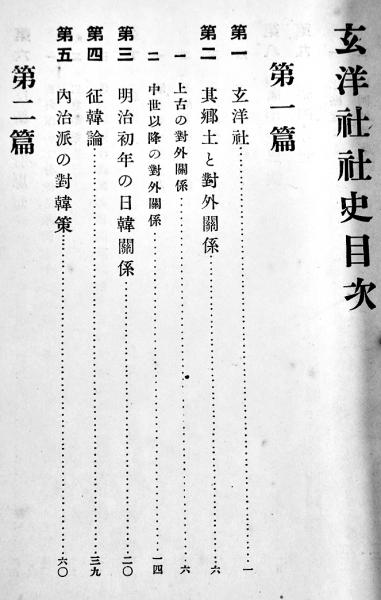 玄洋社社史目次
第一篇
第一 玄洋社……一
第二 其鄕土と對外關係……六
一 上古の對外關係……六
二 中世以降の對外關係……一四
第三 明治初年の日韓關係……二〇
第四 征韓論……三九
第五 內治派の對韓策……六〇
第二篇